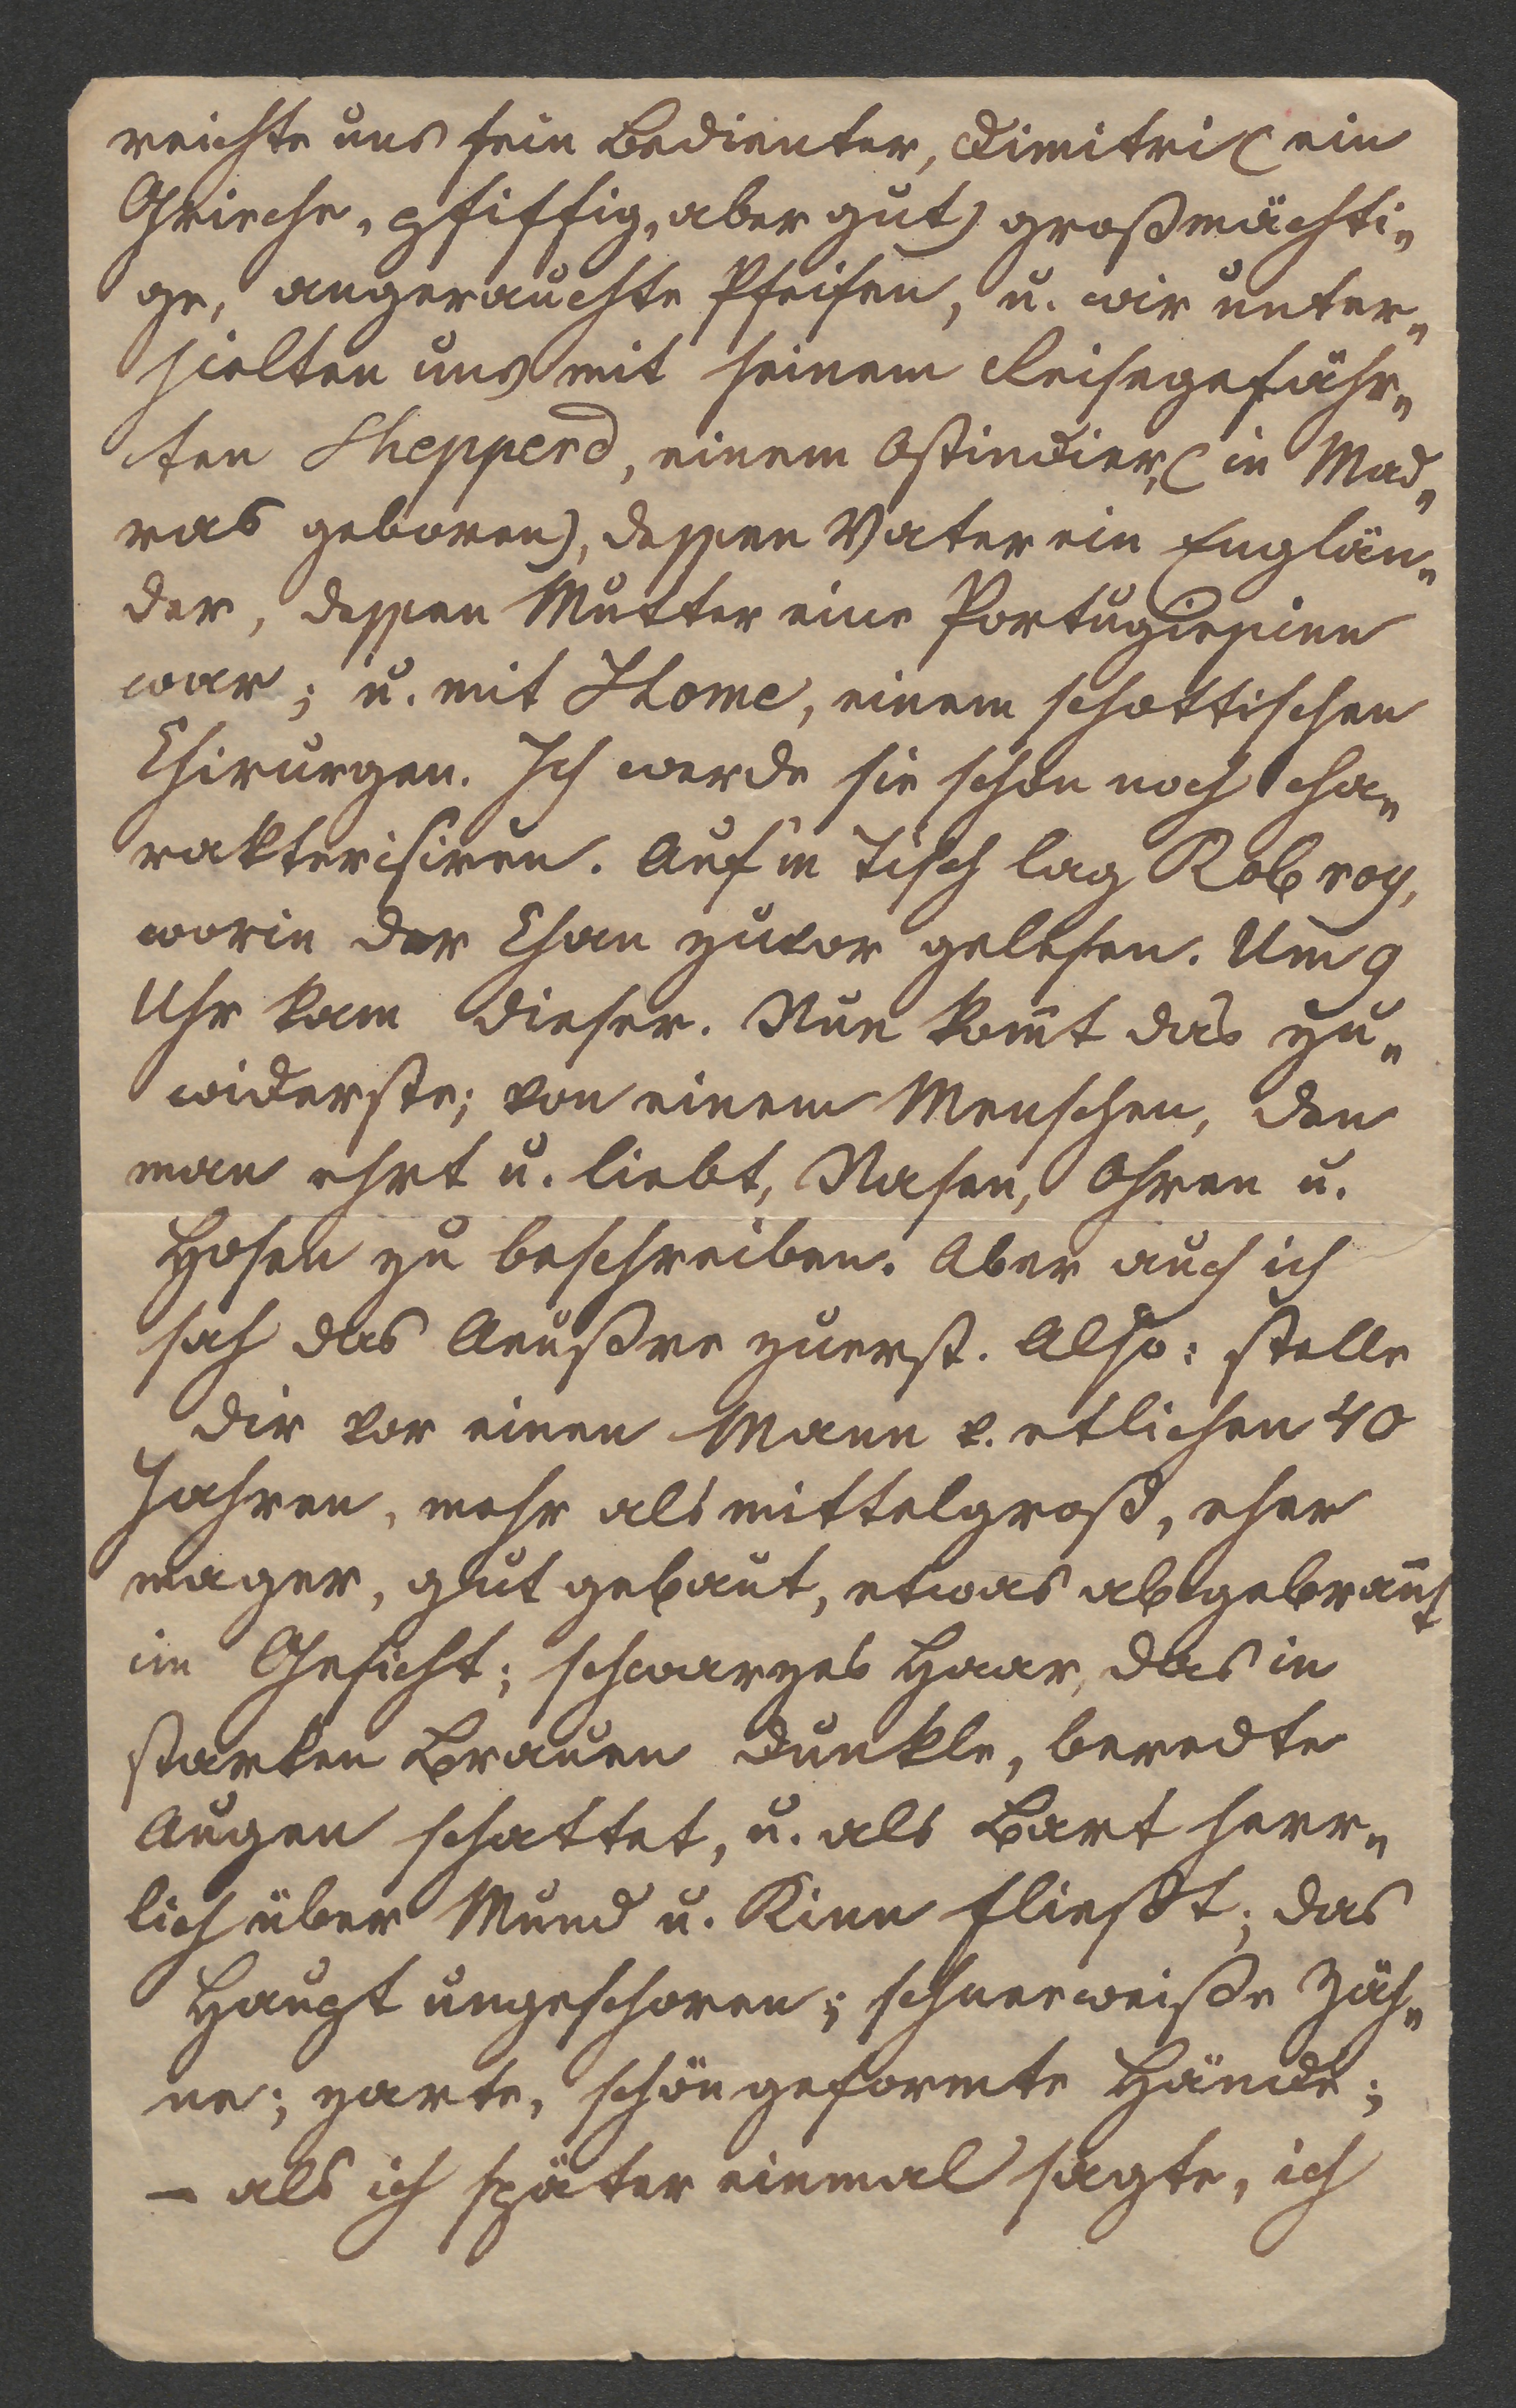 reichte uns sein Bedienter, Dimitri (ein
Grieche, pfiffig, aber gut) großmächti„
ge, angerauchte Pfeifen, u. wir unter„
hielten uns mit seinem Reisegefähr„
ten Shepperd, einem Ostindier, (in Mad„
ras geboren), dessen Vater ein Englän„
der, dessen Mutter eine Portugiesinn
war; u. mit Thome, einem schottischen
Chirurgen. Ich werde sie schon noch cha„
rakterisiren. Auf'm Tisch lag Rob roy,
worin der Chan zuvor gelesen. Um 9
Uhr kam dieser. Nun kom̄t das zu„
widerste; von einem Menschen, den
man ehrt u. liebt, Nasen, Ohren u.
Hosen zu beschreiben. Aber auch ich
sah das Aeußre zuerst. Also: stelle
dir vor einen Mann v. etlichen 40
Jahren, mehr als mittelgroß, eher
mager, gut gebaut, etwas abgebran̄t
im Gesicht; schwarzes Haar, das in
starken Brauen dunkle, beredte
Augen schattet, u. als Bart herr„
lich über Mund u. Kinn fließt; das
Haupt ungeschoren; schneeweiße Zäh„
ne; zarte, schön geformte Hände;
– als ich später einmal sagte, ich